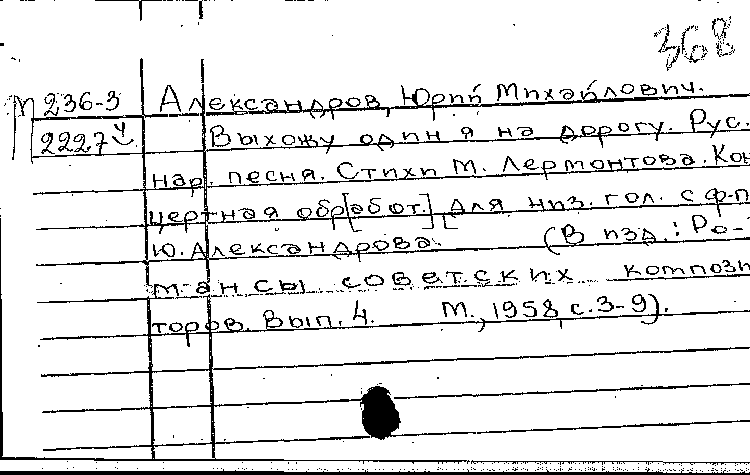 368
М 236-3 Александров, Юрий Михайлович.
2227 Выхожу один я на дорогу. Рус.
нар. песня. Стихи М. Лермонтова. Кон
цертная обр[абот.] для низ. гол. с ф-п
Ю. Александрова. (В изд.: Ро-
мансы советских компози
торов. Вып. 4. М., 1958, с. 3-9).